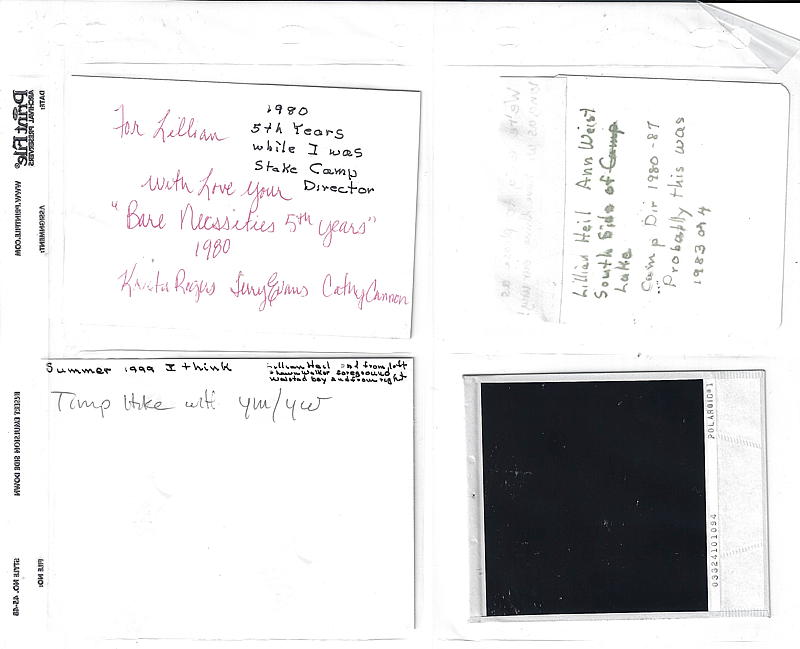 For Lillian
1980
5th Years
while I was
Stake Camp
Director
with Love your
"Bare Necssities 5th years"
1980
Krista Rogers Terry Evans Cathy Cannon
Lillian Heil Ann Weist
South Side of Camp
Lake
Camp Dir 1980-87
Probably this was
1983 or 4
Summer 1999 I think
Lillian Heil 2nd from left
Shawn Walker foreground
Timp Hike with YM/YW
POLAROID®1
03324101094
DATE:
ASSIGNMENT:
FILE NO:
Print File®
ARCHIVAL PRESERVERS
WWW.PRINTFILE.COM
INSERT EMULSION SIDE DOWN
STYLE NO. 45-4B